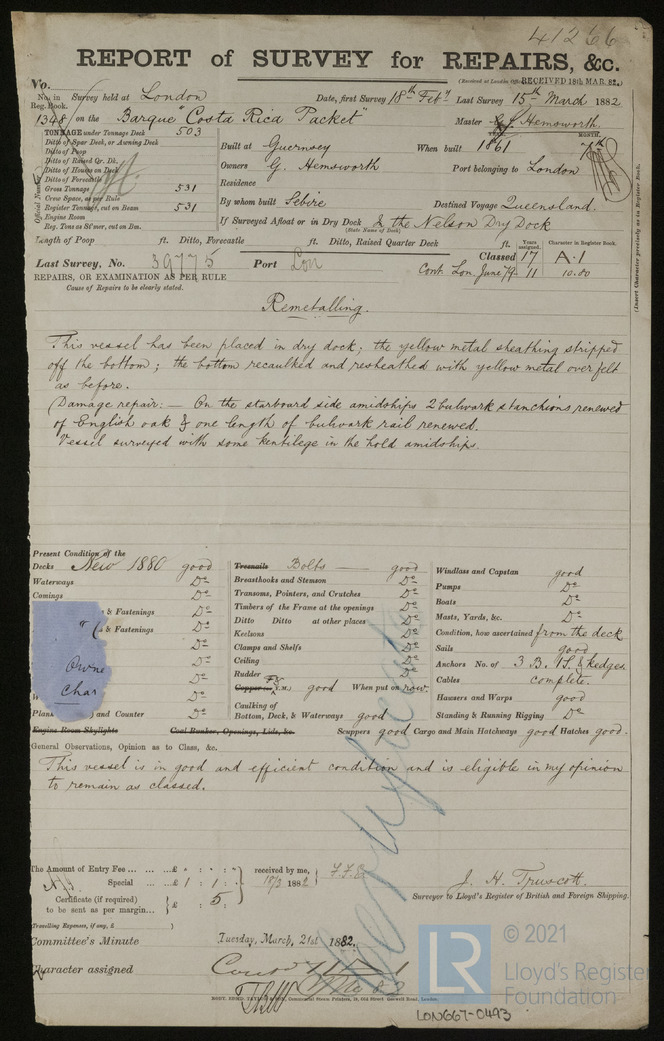 41266
REPORT of SURVEY for REPAIRS, &c.
(Received at London Office RECEIVED 18th MAR. 82.)
No.
No. in Reg. Book. Survey held at London Date, first Survey 18th Feby Last Survey 15th March 1882
1348 on the Barque "Costa Rica Packet" Master G. Hemsworth.
TONNAGE under Tonnage Deck 503
Ditto of Spar Deck, or Awning Deck
Ditto of Poop
Ditto of Raised Qr. Dk.
Ditto of House on Deck
Ditto of Forecastle
Gross Tonnage 531
Crew Space, as per Rule
Register Tonnage, cut on Beam 531
Engine Room
Reg. Tons as SCwer, cut on Bm.
Official Number
YEAR. MONTH.
Built at Guernsey When built 1861 7th
Owners G. Hemsworth
Residence Port belonging to London
By whom built Sebire Destined Voyage Queensland.
If Surveyed Afloat or in Dry Dock & the Nelson Dry Dock
(State Name of Dock)
Length of Poop ft. Ditto, Forecastle ft. Ditto, Raised Quarter Deck ft.
Years assigned. Character in Register Book.
Last Survey, No. 39775 Port Lon Classed 17 A.1
Cont. Lon. June 79. 11 10.80
REPAIRS, OR EXAMINATION AS PER RULE
Cause of Repairs to be clearly stated.
(Insert Character precisely as in Register Book.
Remetalling.
This vessel has been placed in dry dock; the yellow metal sheathing stripped
off the bottom; the bottom recaulked and resheathed with yellow metal over felt
as before.
Damage repair:— On the starboard side amidships 2 bulwark stanchions renewed
of English oak & one length of bulwark rail renewed.
Vessel surveyed with some kentilege in the hold amidships.
Present Condition of the
Decks New 1880 good
Waterways Do
Comings Do
s & Fastenings Do
s & Fastenings Do
Do
Do
Do
Plank and Counter Do
Owne
Char
Treenails Bolts good
Breasthooks and Stemson Do
Transoms, Pointers, and Crutches Do
Timbers of the Frame at the openings Do
Ditto Ditto at other places Do
Keelsons Do
Clamps and Shelfs Do
Ceiling Do
Rudder Do
Copper or Y.M.) good When put on now
Caulking of
Bottom, Deck, & Waterways good
Windlass and Capstan good
Pumps Do
Boats Do
Masts, Yards, &c. Do
Condition, how ascertained from the deck
Sails good
Anchors No. of 3 B. 1 S. & kedges.
Cables complete.
Hawsers and Warps good
Standing & Running Rigging Do
Engine Room Skylights Coal Bunker, Openings, Lids, &c. Scuppers good Cargo and Main Hatchways good Hatches good.
General Observations, Opinion as to Class, &c.
This vessel is in good and efficient condition and is eligible in my opinion
to remain as classed.
The Amount of Entry Fee ... £ : : received by me,
Special ... £ 1 : 1 : 18/3 1882
Certificate (if required) to be sent as per margin... £ : 5 :
(Travelling Expenses, if any, £ )
J. H. Truscott.
Surveyor to Lloyd's Register of British and Foreign Shipping.
Committee's Minute Tuesday, March, 21st 1882.
Character assigned
© 2021
LR Lloyd's Register
Foundation
LON667-0493